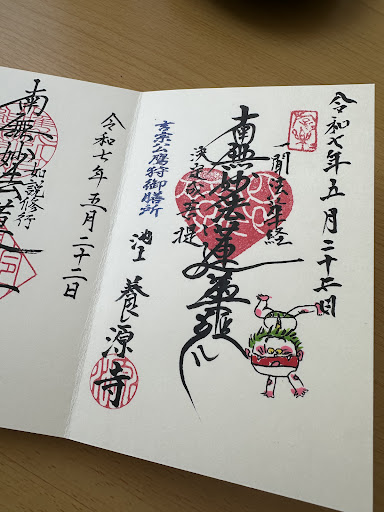 令和七年五月二十五日
一聞法華経
南無妙法蓮華経
決定成菩提
吉宗公鷹狩御膳所
池上 養源寺
令和七年五月二十二日
如説修行
南無妙法蓮